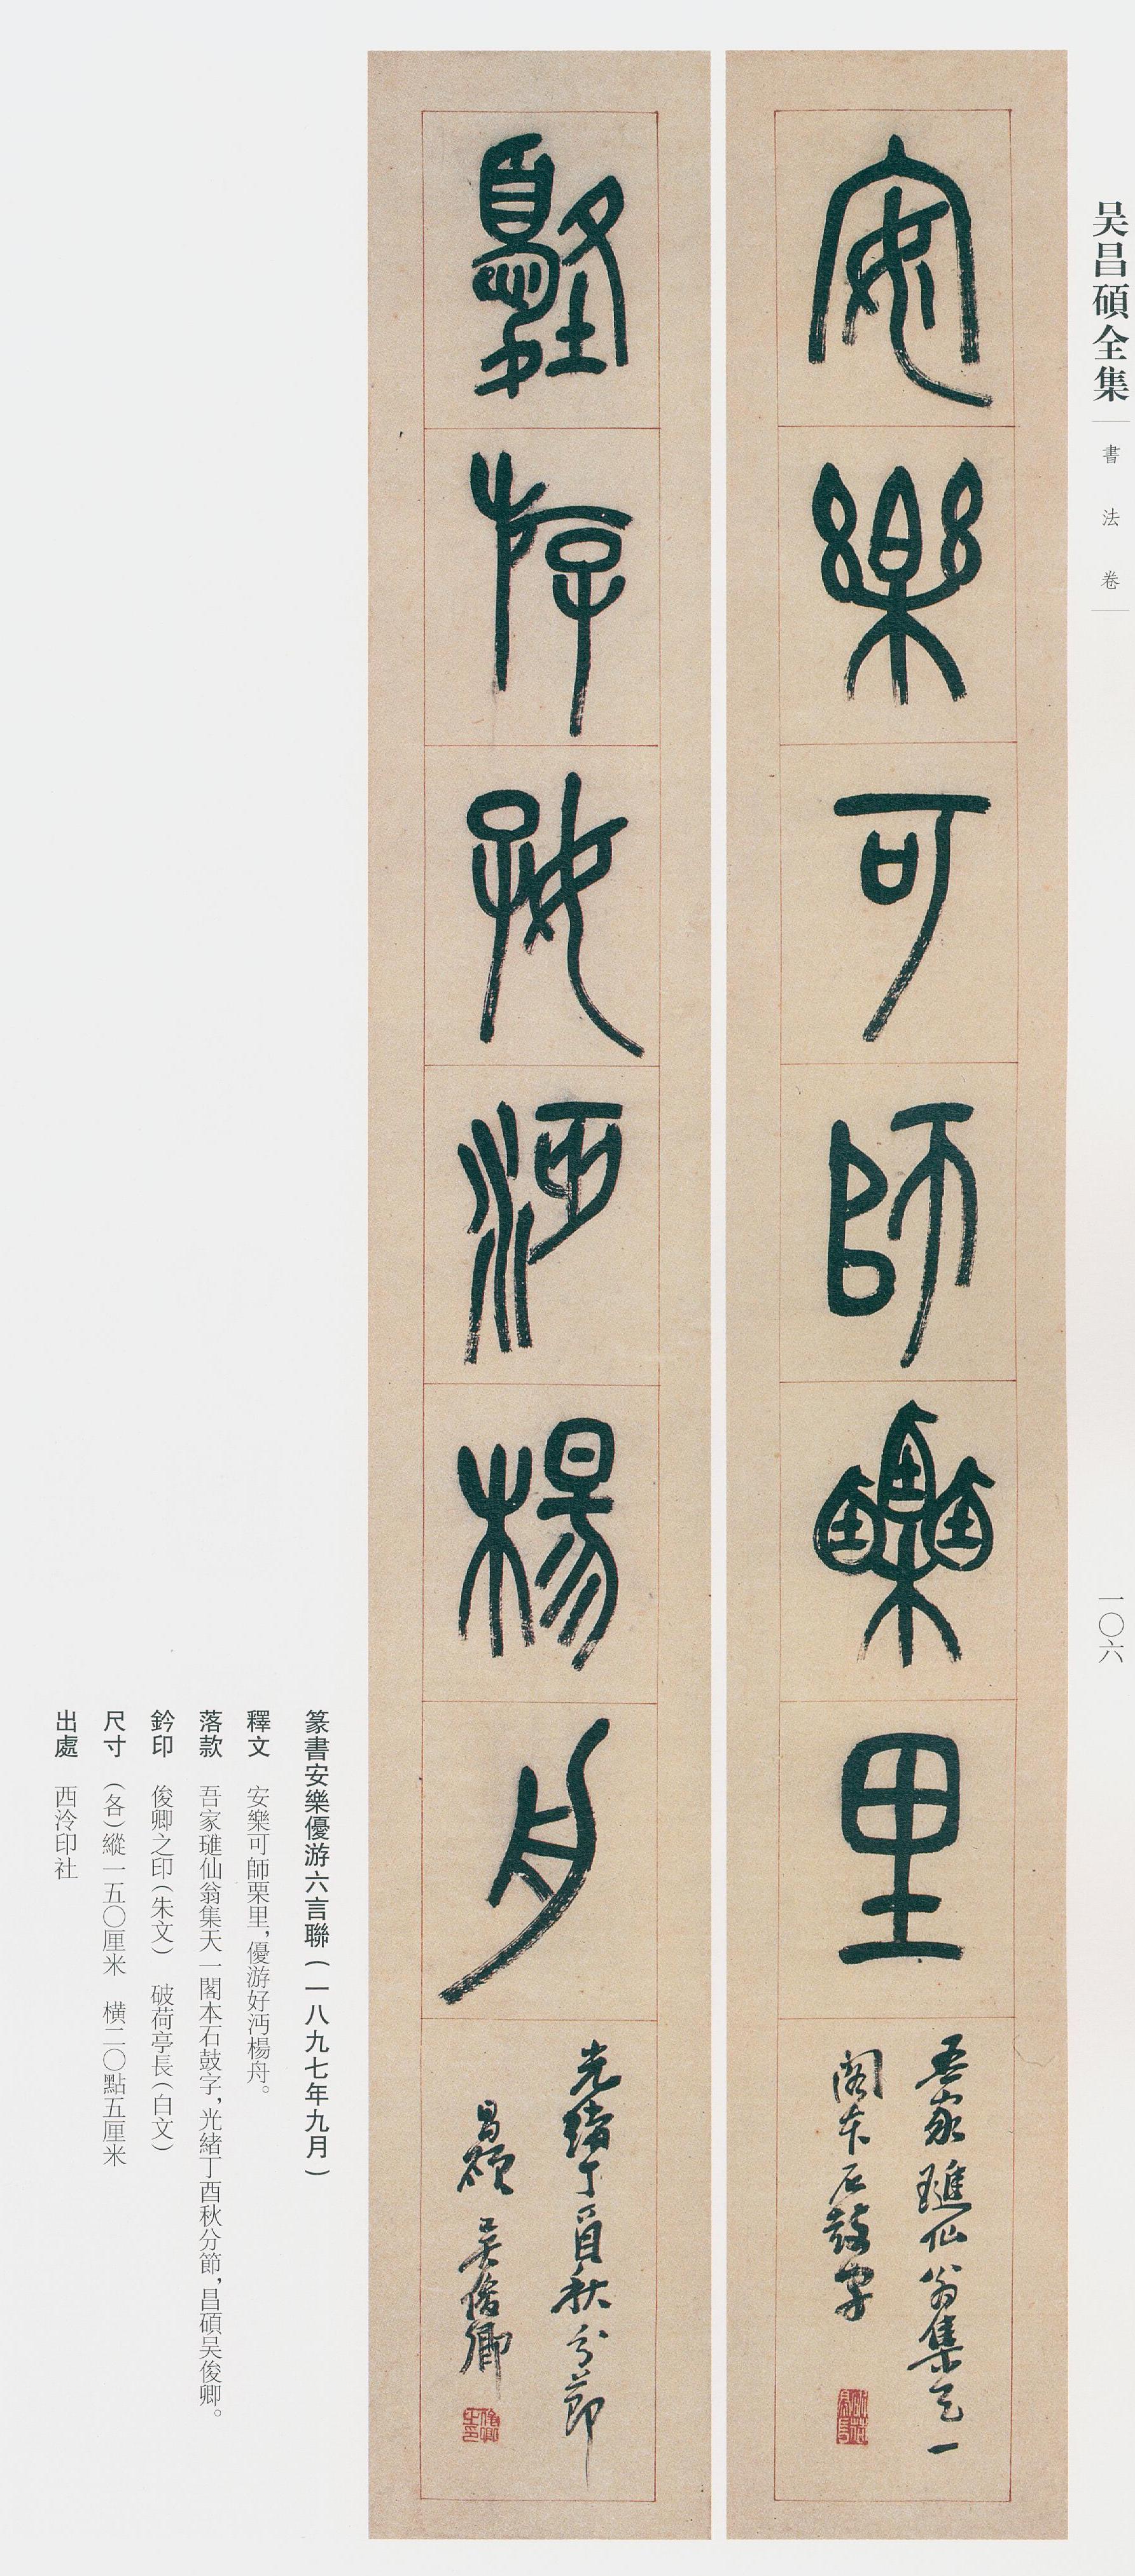 吴昌碩全集
書法卷
一〇六
安樂可師栗里
吾家璡仙翁集天一
閣本石鼓字
優游好沔楊舟
光緒丁酉秋分節
昌碩吴俊卿
俊卿之印
篆書安樂優游六言聯(一八九七年九月)
釋文 安樂可師栗里,優游好沔楊舟。
落款 吾家璡仙翁集天一閣本石鼓字,光緒丁酉秋分節,昌碩吴俊卿。
鈐印 俊卿之印(朱文) 破荷亭長(白文)
尺寸 (各)縱一五〇厘米 横二〇點五厘米
出處 西泠印社